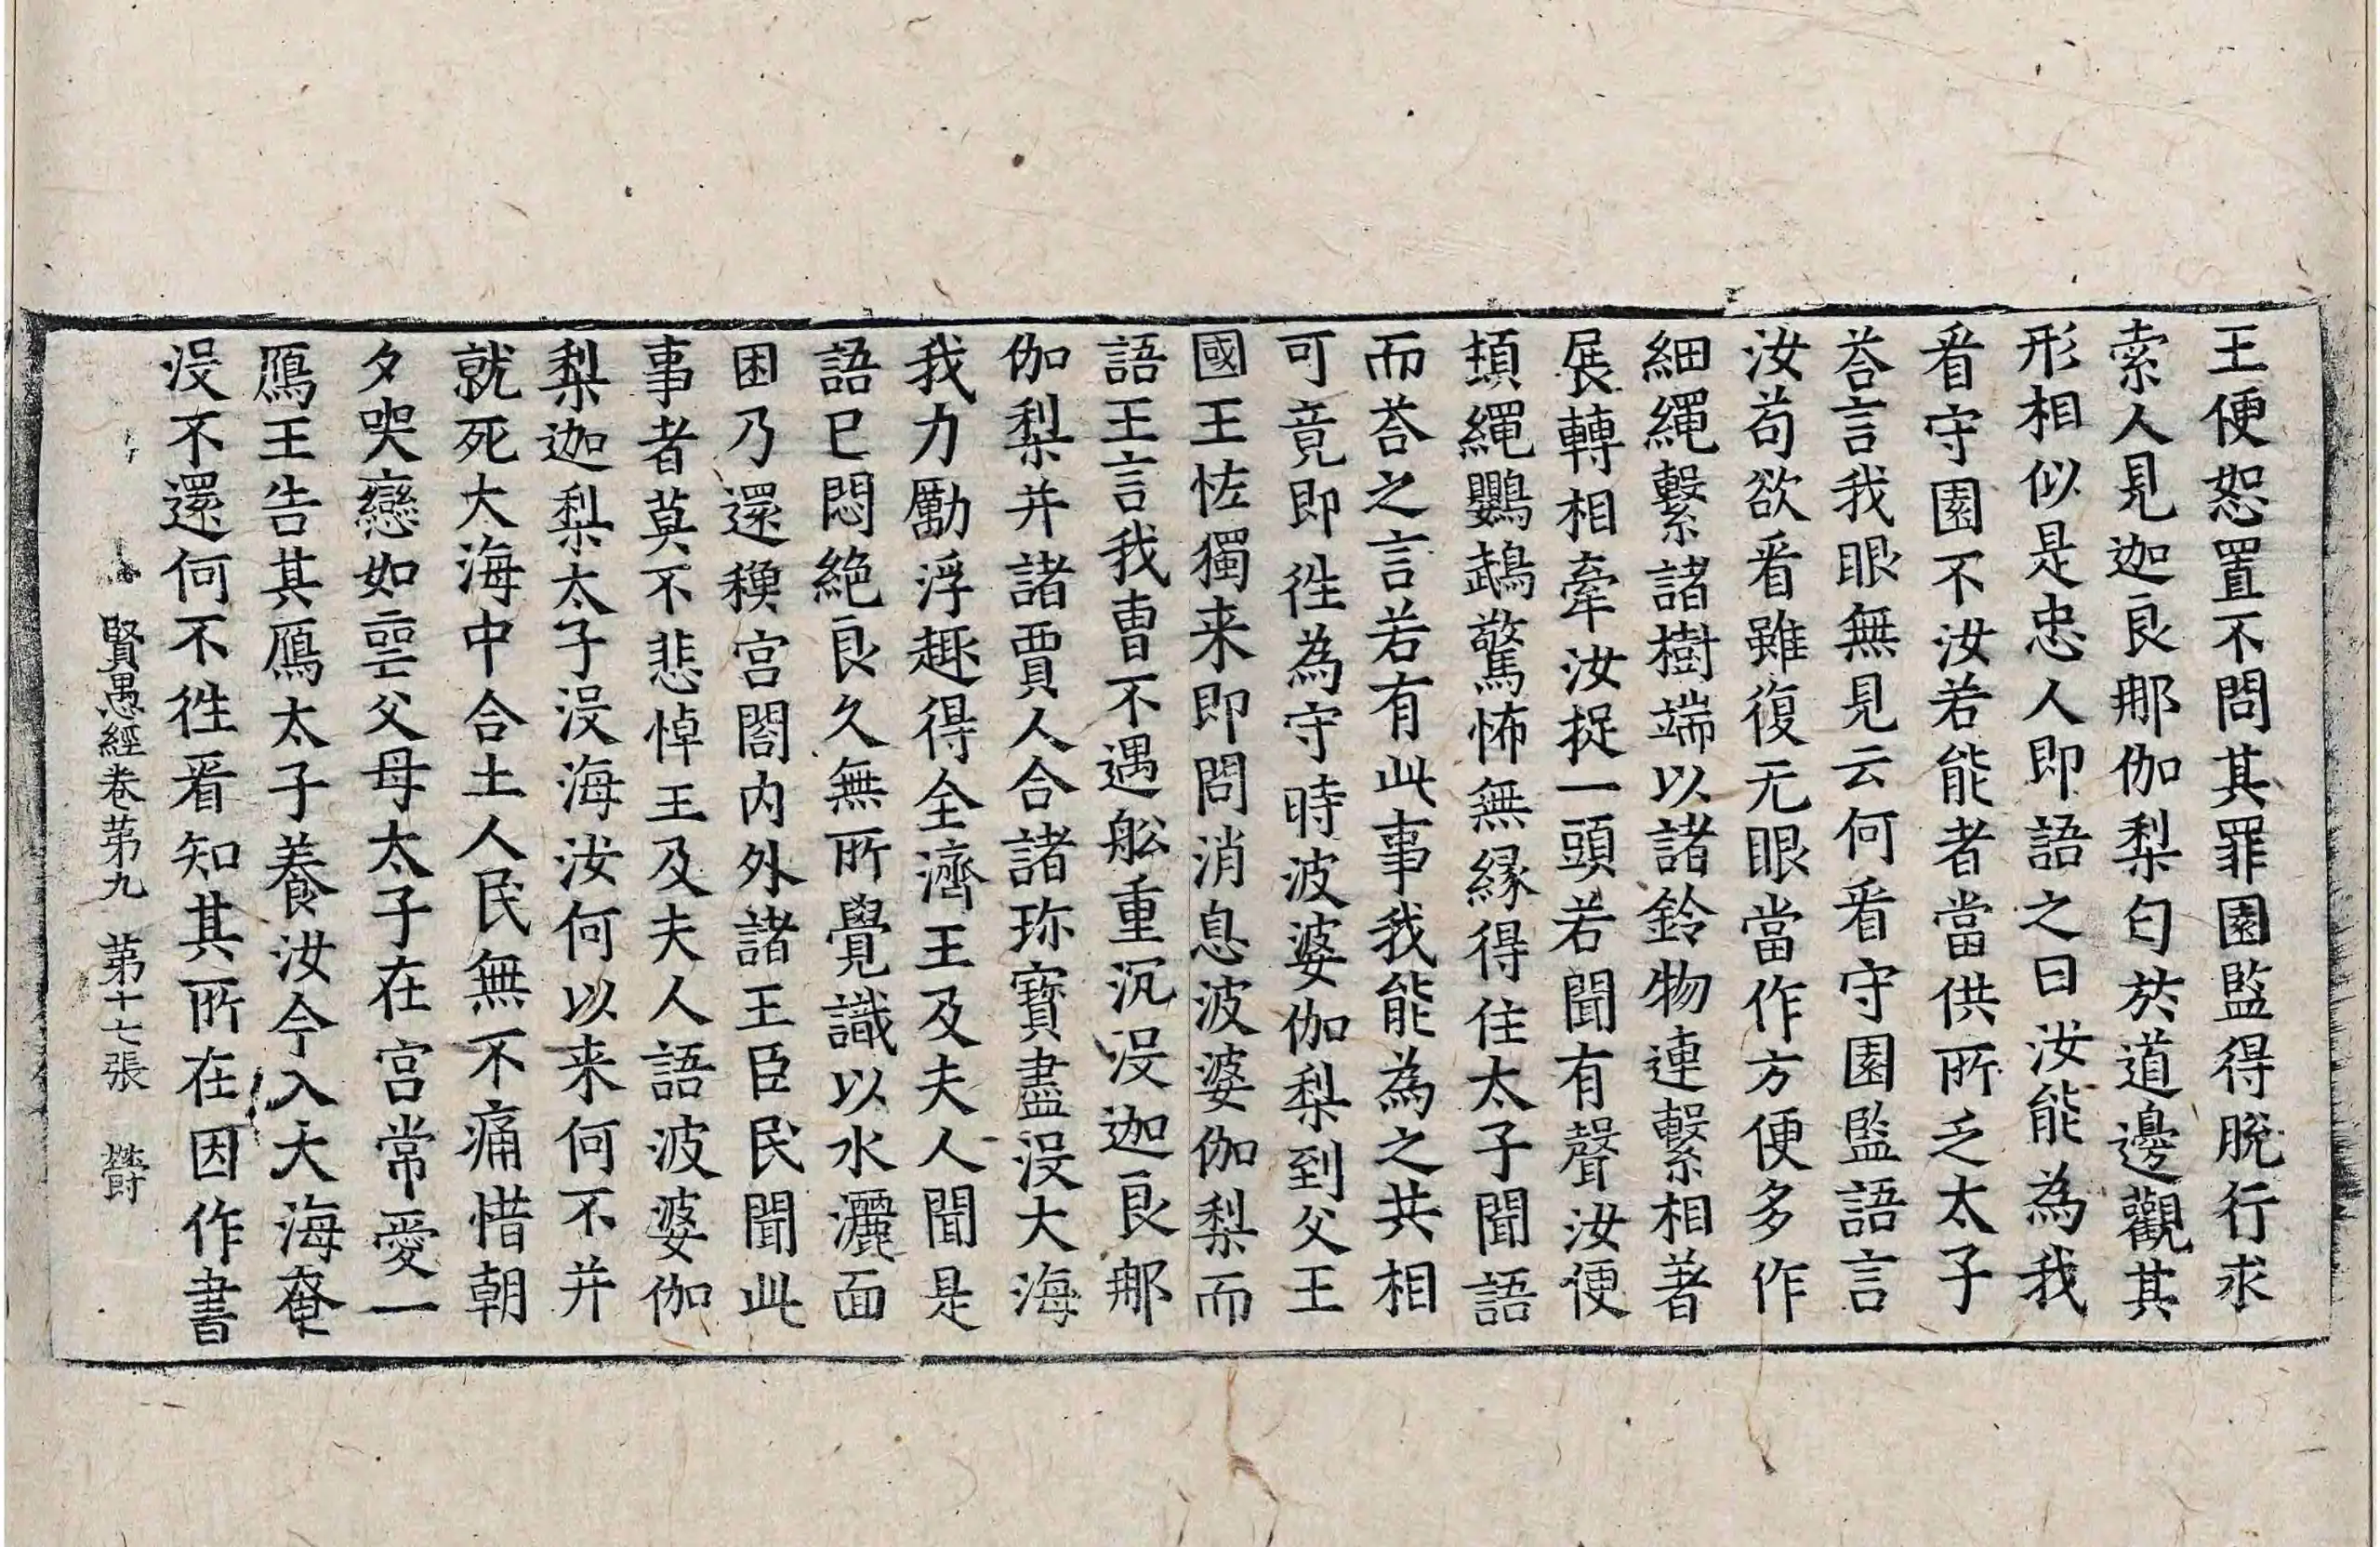 王便恕置不問其罪園監得脫行求
索人見迦良那伽梨匂於道邊觀其
形相似是忠人即語之曰汝能為我
看守園不汝若能者當供所乏太子
荅言我眼無見云何看守園監語言
汝苟欲看雖復无眼當作方便多作
細繩繫諸樹端以諸鈴物連繫相著
展轉相牽汝捉一頭若聞有聲汝便
頓繩鸚鵡驚怖無緣得住太子聞語
而荅之言若有此事我能為之共相
可竟即徃為守時波婆伽梨到父王
國王恠獨来即問消息波婆伽梨而
語王言我曹不遇舩重沉沒迦良那
伽梨并諸賈人合諸珎寶盡沒大海
我力勵浮趣得全濟王及夫人聞是
語已悶絕良久無所覺識以水灑面
困乃還穌宮閤內外諸王臣民聞此
事者莫不悲悼王及夫人語波婆伽
梨迦梨太子沒海汝何以来何不并
就死大海中合土人民無不痛惜朝
夕哭戀如喪父母太子在宮常愛一
鴈王告其鴈太子養汝今入大海奄
沒不還何不徃看知其所在因作書
賢愚經卷苐九 苐十七張 欝